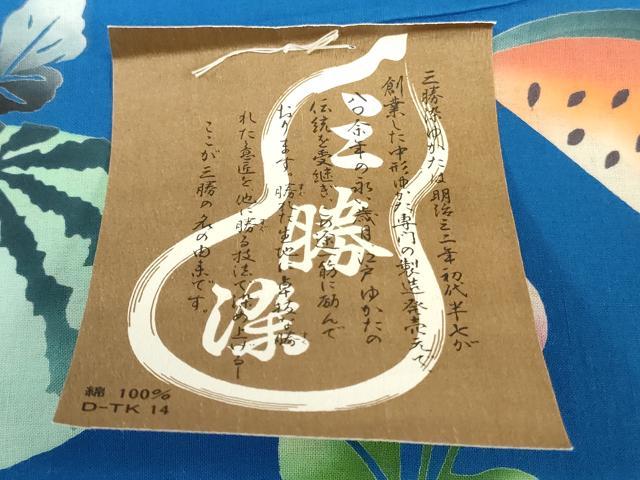 三勝染ゆかたは明治二二年初代半七が
創業した中形ゆかた専門の製造発売元で
八〇余年の永い歳月江戸ゆかたの
伝統を受継ぎ、この一筋に励んで
おります。勝れた生地に
れた意匠を他に勝る技法で染め上げる
ここが三勝の名の由来です。
三勝染
綿 100%
D-TK 14